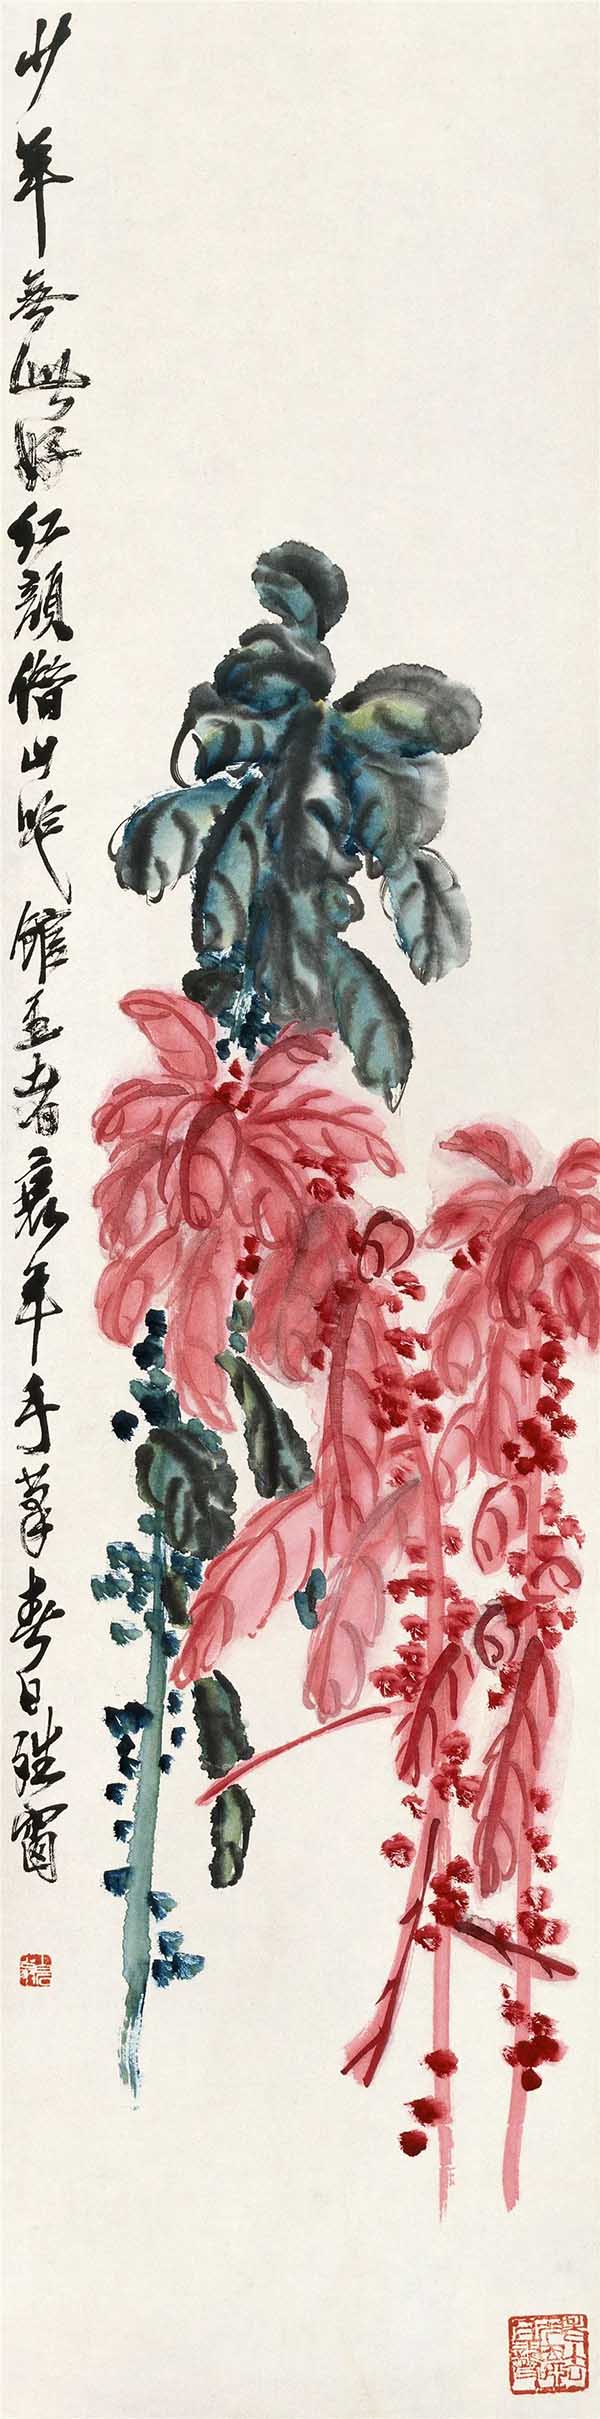 少年無此好紅顏借山吟館主者衰年手筆春日窗